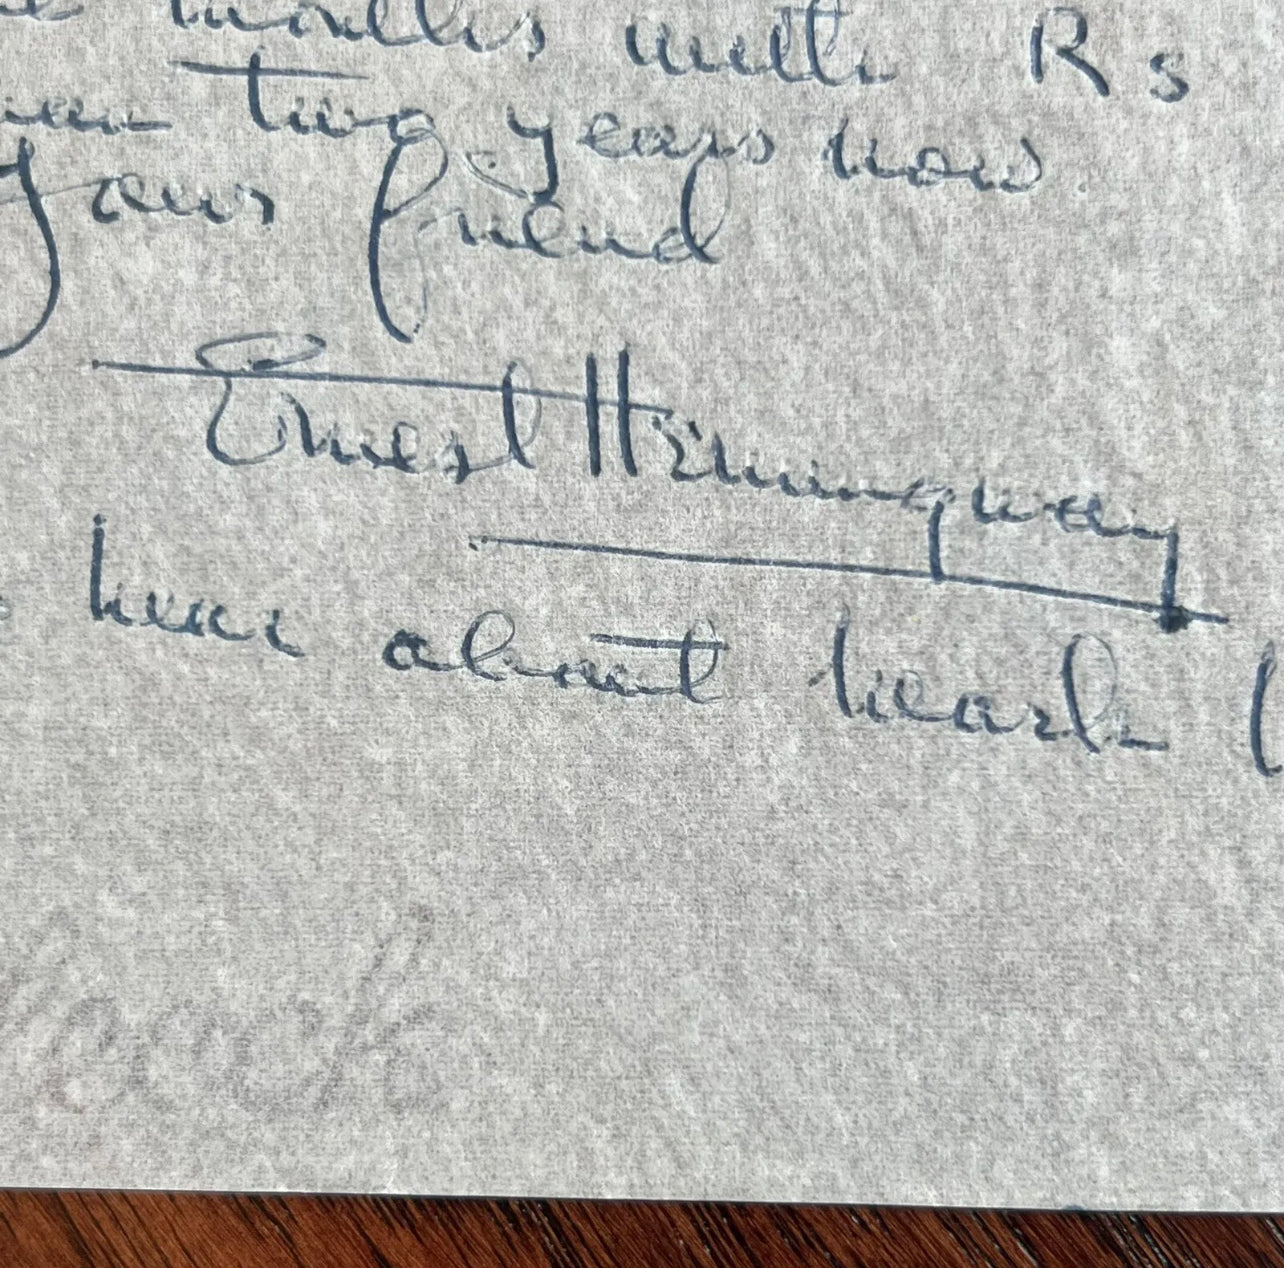 months with Rs
two years now.
Your friend
Ernest Hemingway
hear about